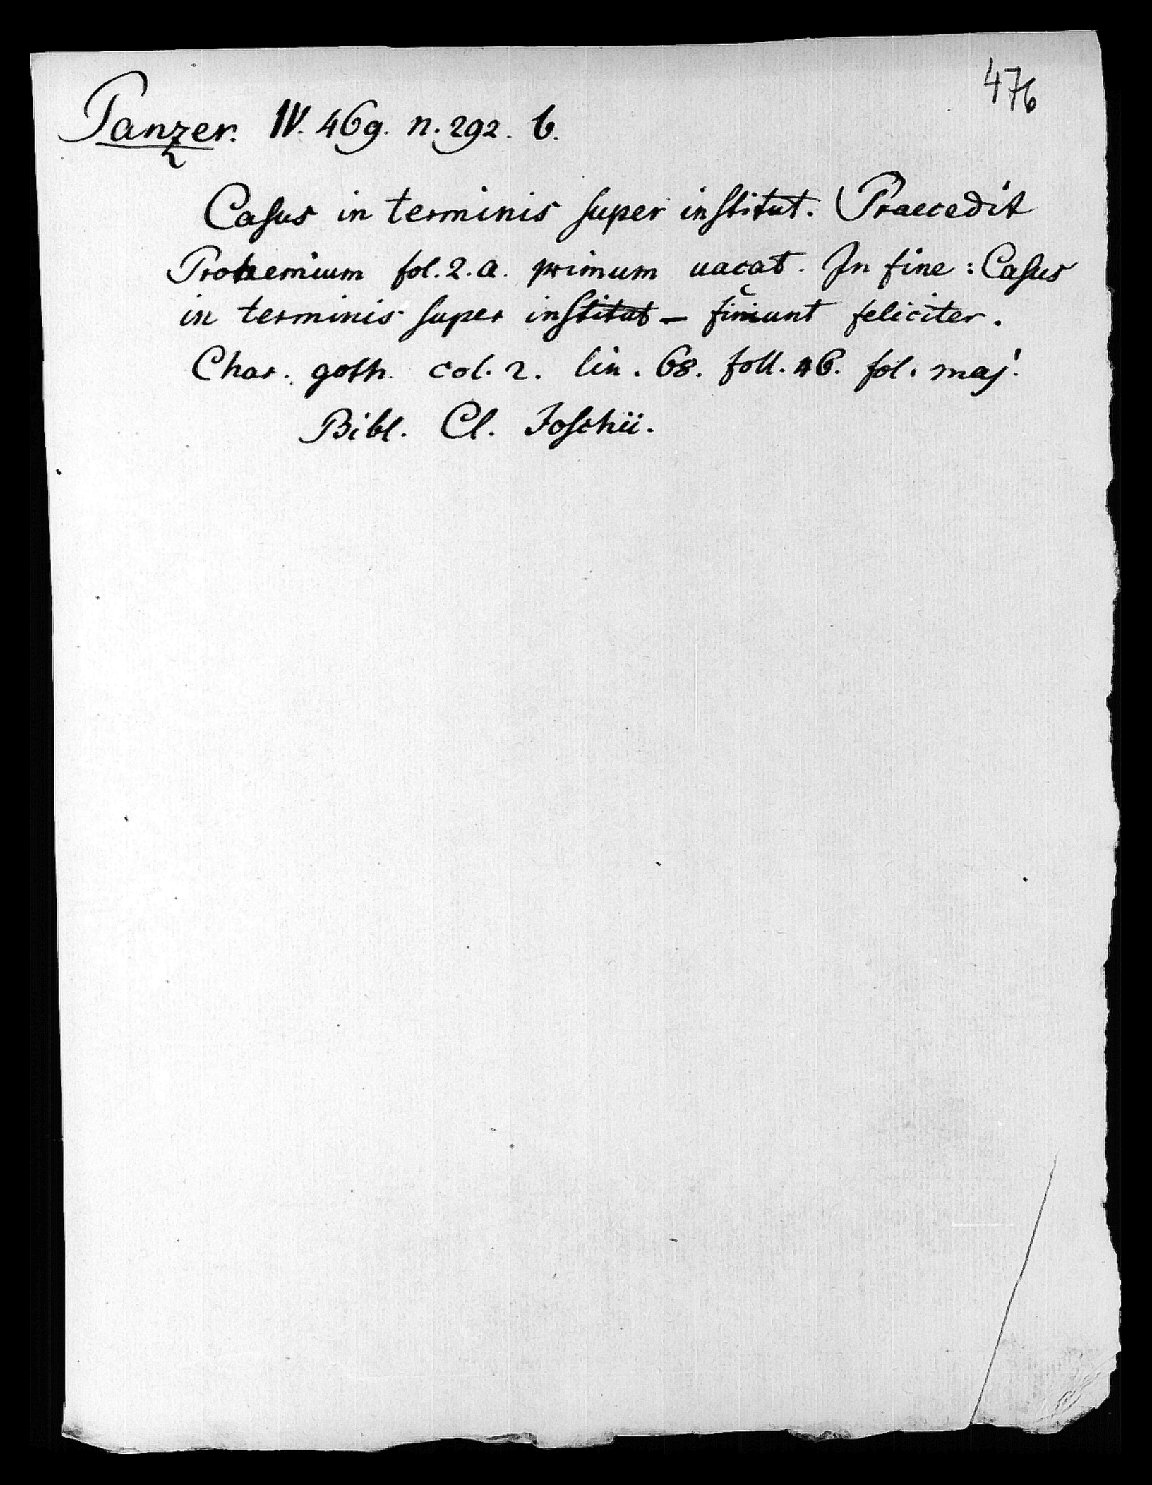 476
Panzer. IV. 469. n. 292. b.
Casus in terminis super institut. Praecedit
Prohemium fol. 2. a. primum uacat. In fine: Casus
in terminis super institut — finiunt feliciter.
Char. goth. col. 2. lin. 68. foll. 46. fol. maj.
Bibl. Cl. Joschii.